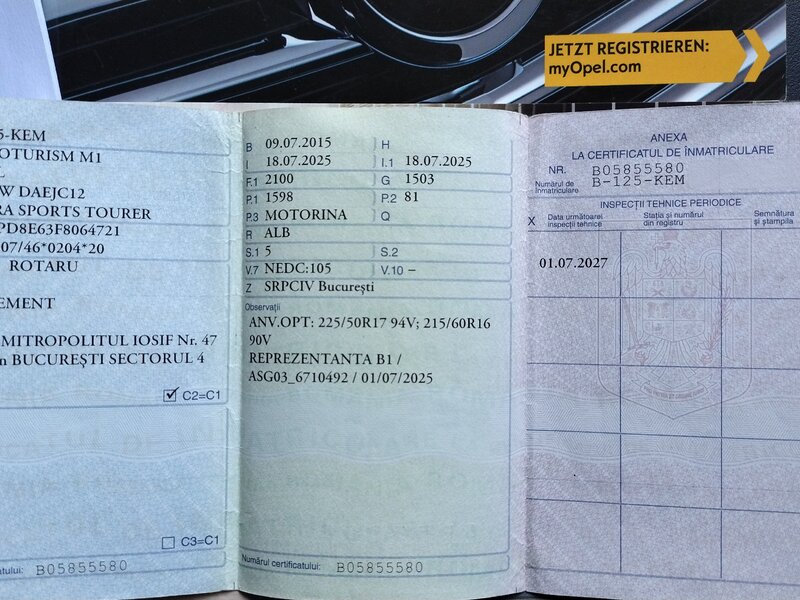 JETZT REGISTRIEREN:
myOpel.com
5-KEM
OTURISM M1
L
W DAEJC12
RA SPORTS TOURER
PD8E63F8064721
07/46*0204*20
ROTARU
EMENT
MITROPOLITUL IOSIF Nr. 47
n BUCUREȘTI SECTORUL 4
C2=C1
C3=C1
atului: B05855580
B 09.07.2015 H
I 18.07.2025 I.1 18.07.2025
F.1 2100 G 1503
P.1 1598 P.2 81
P.3 MOTORINA Q
R ALB
S.1 5 S.2
V.7 NEDC:105 V.10 –
Z SRPCIV București
Observații
ANV.OPT: 225/50R17 94V; 215/60R16
90V
REPREZENTANTA B1 /
ASG03_6710492 / 01/07/2025
Numărul certificatului: B05855580
ANEXA
LA CERTIFICATUL DE ÎNMATRICULARE
NR. B05855580
Numărul de înmatriculare B-125-KEM
INSPECȚII TEHNICE PERIODICE
X Data următoarei inspecții tehnice Stația și numărul din registru Semnătura și ștampila
01.07.2027